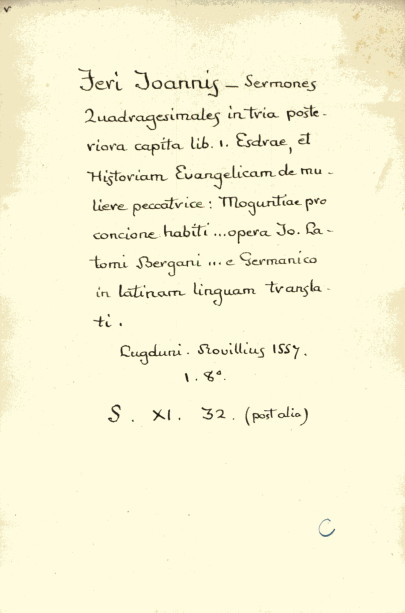 Feri Joannis — Sermones
Quadragesimales in tria poste-
riora capita lib. 1. Esdrae, et
Historiam Evangelicam de mu-
liere peccatrice: Moguntiae pro
concione habiti ... opera Jo. La-
tomi Bergani ... e Germanico
in latinam linguam transla-
ti.
Lugduni. Rovillius 1557.
1. 8°.
S. XI. 32. (post alia)
C